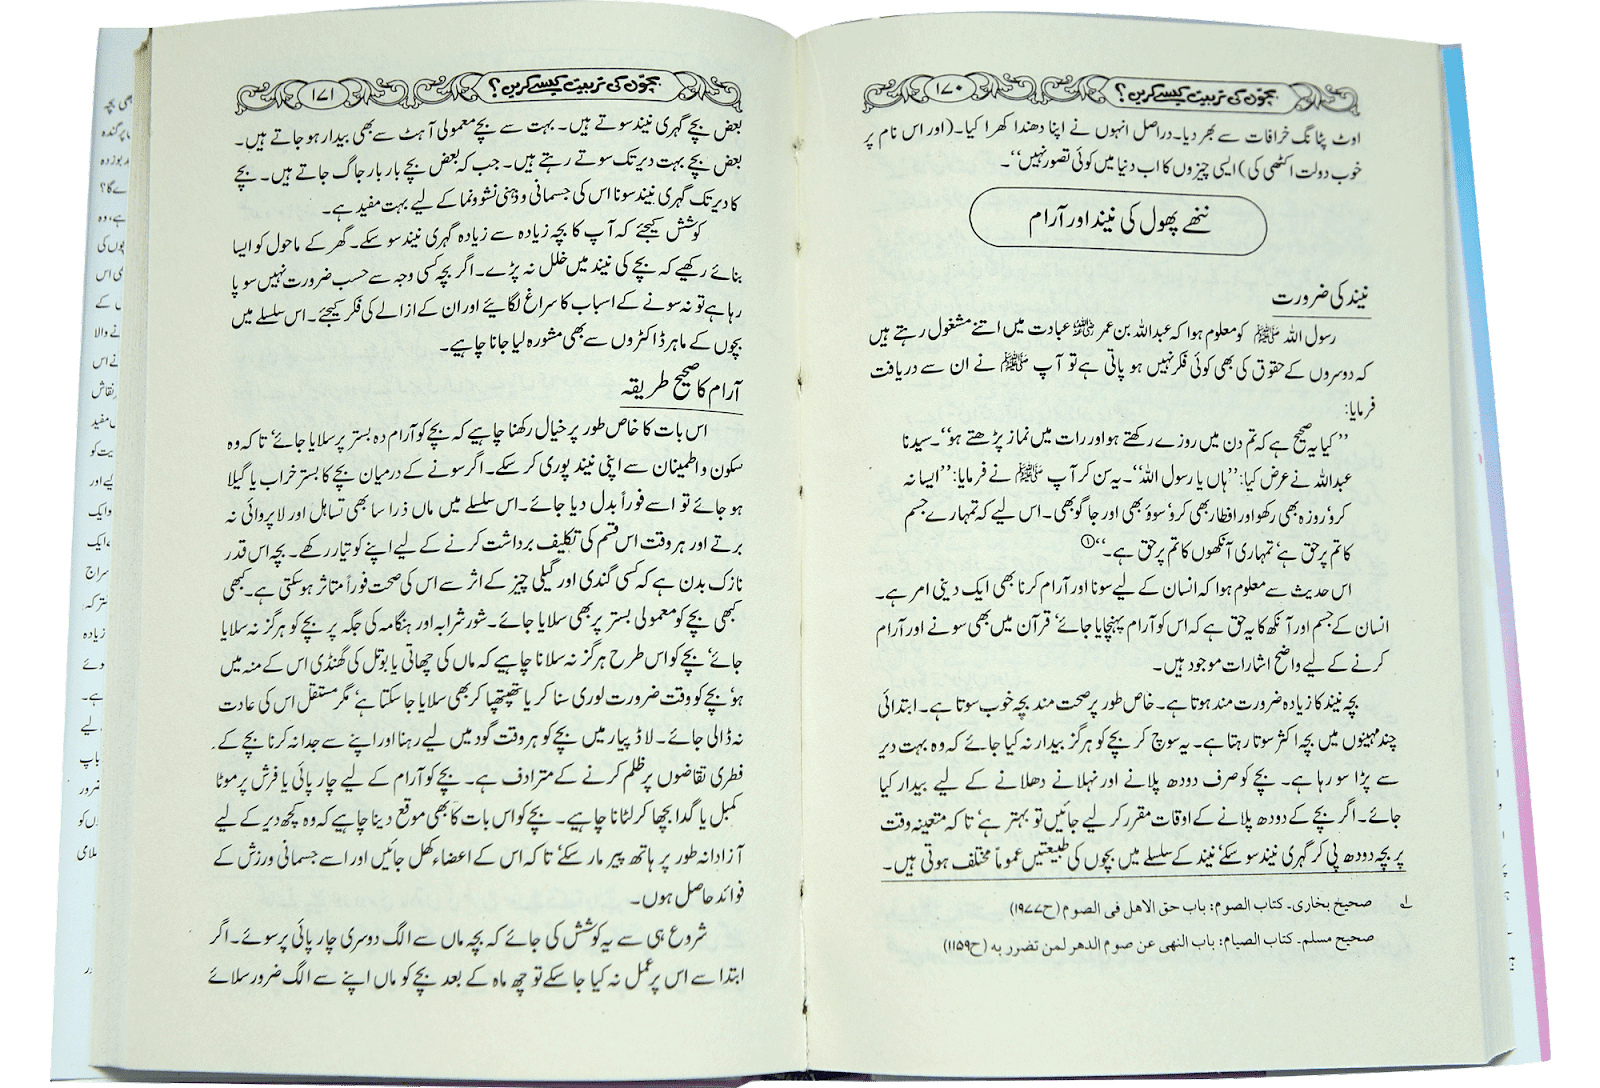 بچّوں کی تربیت کیسے کریں؟ ۱۷۰
اوٹ پٹانگ خرافات سے بھر دیا۔ دراصل انہوں نے اپنا دھندا کھرا کیا۔ (اور اس نام پر
خوب دولت اکٹھی کی) ایسی چیزوں کا اب دنیا میں کوئی تصور نہیں‘‘۔
ننھے پھول کی نیند اور آرام
نیند کی ضرورت
رسول اللہ ﷺ کو معلوم ہوا کہ عبداللہ بن عمر عبادت میں اتنے مشغول رہتے ہیں
کہ دوسروں کے حقوق کی بھی کوئی فکر نہیں ہو پاتی ہے تو آپ ﷺ نے ان سے دریافت
فرمایا:
’’کیا یہ صحیح ہے کہ تم دن میں روزے رکھتے ہو اور رات میں نماز پڑھتے ہو‘‘۔ سیدنا
عبداللہ نے عرض کیا: ’’ہاں یا رسول اللہ‘‘۔ یہ سن کر آپ ﷺ نے فرمایا: ’’ایسا نہ
کرو‘ روزہ بھی رکھو اور افطار بھی کرو‘ سوؤ بھی اور جاگو بھی۔ اس لیے کہ تمہارے جسم
کا تم پر حق ہے‘ تمہاری آنکھوں کا تم پر حق ہے۔‘‘①
اس حدیث سے معلوم ہوا کہ انسان کے لیے سونا اور آرام کرنا بھی ایک دینی امر ہے۔
انسان کے جسم اور آنکھ کا یہ حق ہے کہ اس کو آرام پہنچایا جائے‘ قرآن میں بھی سونے اور آرام
کرنے کے لیے واضح اشارات موجود ہیں۔
بچہ نیند کا زیادہ ضرورت مند ہوتا ہے۔ خاص طور پر صحت مند بچہ خوب سوتا ہے۔ ابتدائی
چند مہینوں میں بچہ اکثر سوتا رہتا ہے۔ یہ سوچ کر بچے کو ہرگز بیدار نہ کیا جائے کہ وہ بہت دیر
سے پڑا سو رہا ہے۔ بچے کو صرف دودھ پلانے اور نہلانے دھلانے کے لیے بیدار کیا
جائے۔ اگر بچے کے دودھ پلانے کے اوقات مقرر کر لیے جائیں تو بہتر ہے‘ تاکہ متعینہ وقت
پر بچہ دودھ پی کر گہری نیند سو سکے‘ نیند کے سلسلے میں بچوں کی طبیعتیں عموماً مختلف ہوتی ہیں۔
؎ صحیح بخاری۔ کتاب الصوم: باب حق الاهل فی الصوم (ح۱۹۷۷)
صحیح مسلم۔ کتاب الصیام: باب النهی عن صوم الدهر لمن تضرر به (ح۱۱۵۹)
بچّوں کی تربیت کیسے کریں؟ ۱۷۱
بعض بچے گہری نیند سوتے ہیں۔ بہت سے بچے معمولی آہٹ سے بھی بیدار ہو جاتے ہیں۔
بعض بچے بہت دیر تک سوتے رہتے ہیں۔ جب کہ بعض بچے بار بار جاگ جاتے ہیں۔ بچے
کا دیر تک گہری نیند سونا اس کی جسمانی و ذہنی نشوونما کے لیے بہت مفید ہے۔
کوشش کیجئے کہ آپ کا بچہ زیادہ سے زیادہ گہری نیند سو سکے۔ گھر کے ماحول کو ایسا
بنائے رکھیے کہ بچے کی نیند میں خلل نہ پڑے۔ اگر بچہ کسی وجہ سے حسب ضرورت نہیں سو پا
رہا ہے تو نہ سونے کے اسباب کا سراغ لگائیے اور ان کے ازالے کی فکر کیجئے۔ اس سلسلے میں
بچوں کے ماہر ڈاکٹروں سے بھی مشورہ لیا جانا چاہیے۔
آرام کا صحیح طریقہ
اس بات کا خاص طور پر خیال رکھنا چاہیے کہ بچے کو آرام دہ بستر پر سلایا جائے‘ تاکہ وہ
سکون و اطمینان سے اپنی نیند پوری کر سکے۔ اگر سونے کے درمیان بچے کا بستر خراب یا گیلا
ہو جائے تو اسے فوراً بدل دیا جائے۔ اس سلسلے میں ماں ذرا سا بھی تساہل اور لاپروائی نہ
برتے اور ہر وقت اس قسم کی تکلیف برداشت کرنے کے لیے اپنے کو تیار رکھے۔ بچہ اس قدر
نازک بدن ہے کہ کسی گندی اور گیلی چیز کے اثر سے اس کی صحت فوراً متاثر ہو سکتی ہے۔ کبھی
کبھی بچے کو معمولی بستر پر بھی سلایا جائے۔ شور شرابہ اور ہنگامہ کی جگہ پر بچے کو ہرگز نہ سلایا
جائے‘ بچے کو اس طرح ہرگز نہ سلانا چاہیے کہ ماں کی چھاتی یا بوتل کی گھنڈی اس کے منہ میں
ہو‘ بچے کو وقت ضرورت لوری سنا کر یا تھپتھپا کر بھی سلایا جا سکتا ہے‘ مگر مستقل اس کی عادت
نہ ڈالی جائے۔ لاڈ پیار میں بچے کو ہر وقت گود میں لیے رہنا اور اپنے سے جدا نہ کرنا بچے کے
فطری تقاضوں پر ظلم کرنے کے مترادف ہے۔ بچے کو آرام کے لیے چارپائی یا فرش پر موٹا
کمبل یا گدا بچھا کر لٹانا چاہیے۔ بچے کو اس بات کا بھی موقع دینا چاہیے کہ وہ کچھ دیر کے لیے
آزادانہ طور پر ہاتھ پیر مار سکے‘ تاکہ اس کے اعضاء کھل جائیں اور اسے جسمانی ورزش کے
فوائد حاصل ہوں۔
شروع ہی سے یہ کوشش کی جائے کہ بچہ ماں سے الگ دوسری چارپائی پر سوئے۔ اگر
ابتدا سے اس پر عمل نہ کیا جا سکے تو چھ ماہ کے بعد بچے کو ماں اپنے سے الگ ضرور سلائے